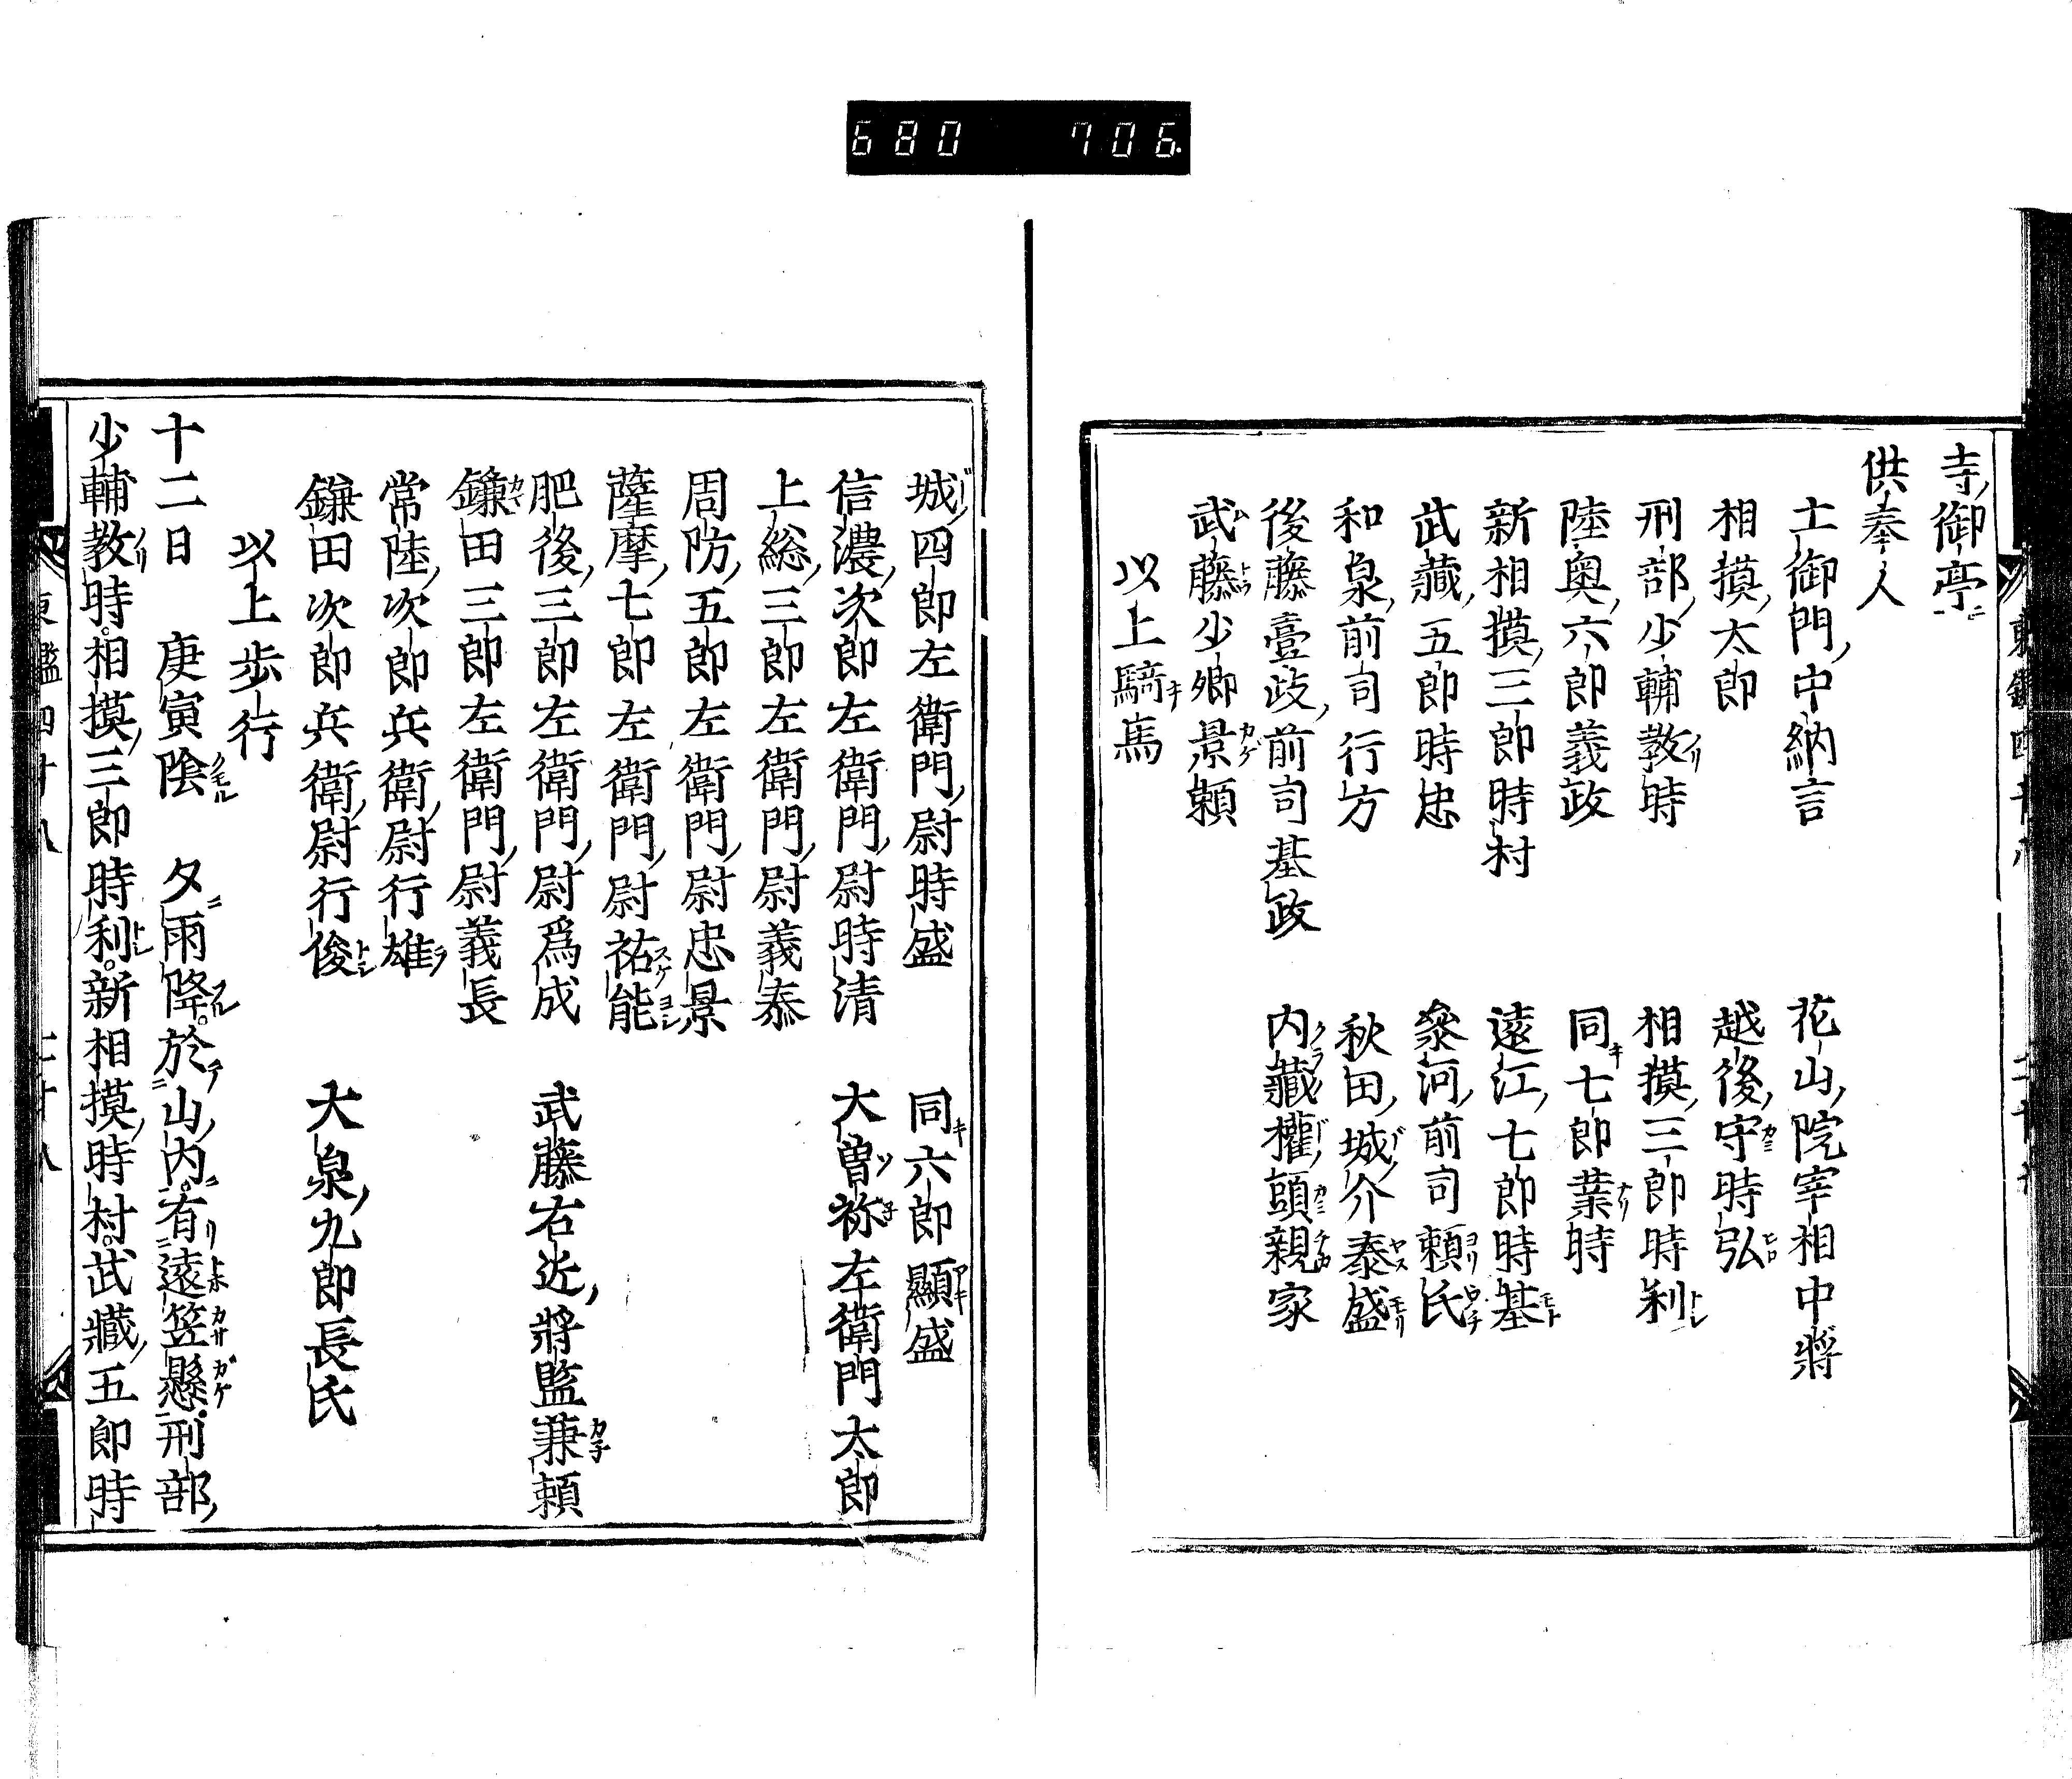 680 706.
寺御亭ニ
供奉人
土御門中納言 花山院宰相中將
相摸太郎 越後守時弘
刑部少輔教時 相摸三郎時利
陸奥六郎義政 同七郎業時
新相摸三郎時村 遠江七郎時基
武藏五郎時忠 參河前司頼氏
和泉前司行方 秋田城介泰盛
後藤壹岐前司基政 内藏權頭親家
武藤少卿景頼
以上騎馬
城四郎左衛門尉時盛 同六郎顯盛
信濃次郎左衛門尉時清 大曽祢左衛門太郎
上総三郎左衛門尉義泰
周防五郎左衛門尉忠景
薩摩七郎左衛門尉祐能
肥後三郎左衛門尉爲成 武藤右近將監兼頼
鎌田三郎左衛門尉義長
常陸次郎兵衛尉行雄
鎌田次郎兵衛尉行俊 大泉九郎長氏
以上歩行
十二日 庚寅陰 夕雨降。於山内。有遠笠懸。刑部
少輔教時。相摸三郎時利。新相摸時村。武藏五郎時